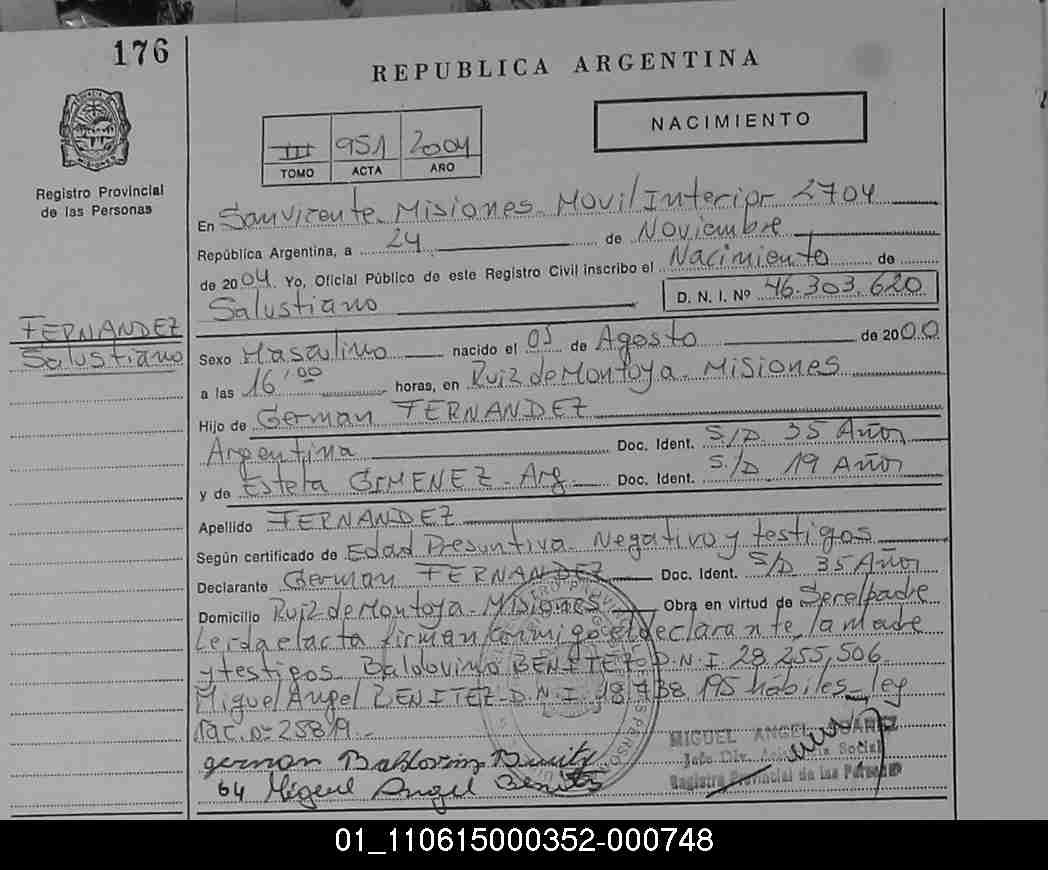 176
REPUBLICA ARGENTINA
NACIMIENTO
III 951 2004
TOMO ACTA AÑO
Registro Provincial
de las Personas
En San Vicente Misiones Movil Interior 2704
República Argentina, a 24 de Noviembre
de 2004. Yo, Oficial Público de este Registro Civil inscribo el Nacimiento de
Salustiano D. N. I. Nº 46.303.620
FERNANDEZ
Salustiano
Sexo Masculino nacido el 05 de Agosto de 2000
a las 16,00 horas, en Ruiz de Montoya - Misiones
Hijo de German FERNANDEZ
Argentina Doc. Ident. S/D 35 Años
y de Estela GIMENEZ - Arg. Doc. Ident. S/D 19 Años
Apellido FERNANDEZ
Según certificado de Edad Presuntiva - Negativo y testigos
Declarante German FERNANDEZ Doc. Ident. S/D 35 Años
Domicilio Ruiz de Montoya - Misiones Obra en virtud de Ser el padre
Leida el acta firman conmigo el declarante, la madre
y testigos Baldovino BENITEZ D.N.I 28.255,506
Miguel Angel BENITEZ - D.N.I 18.738.195 hábiles - ley
Nac. nº 25819.-
german
Miguel Angel Benitez
MIGUEL ANGEL SUAREZ
Jefe Div. Asistencia Social
Registro Provincial de las Personas
01_110615000352-000748